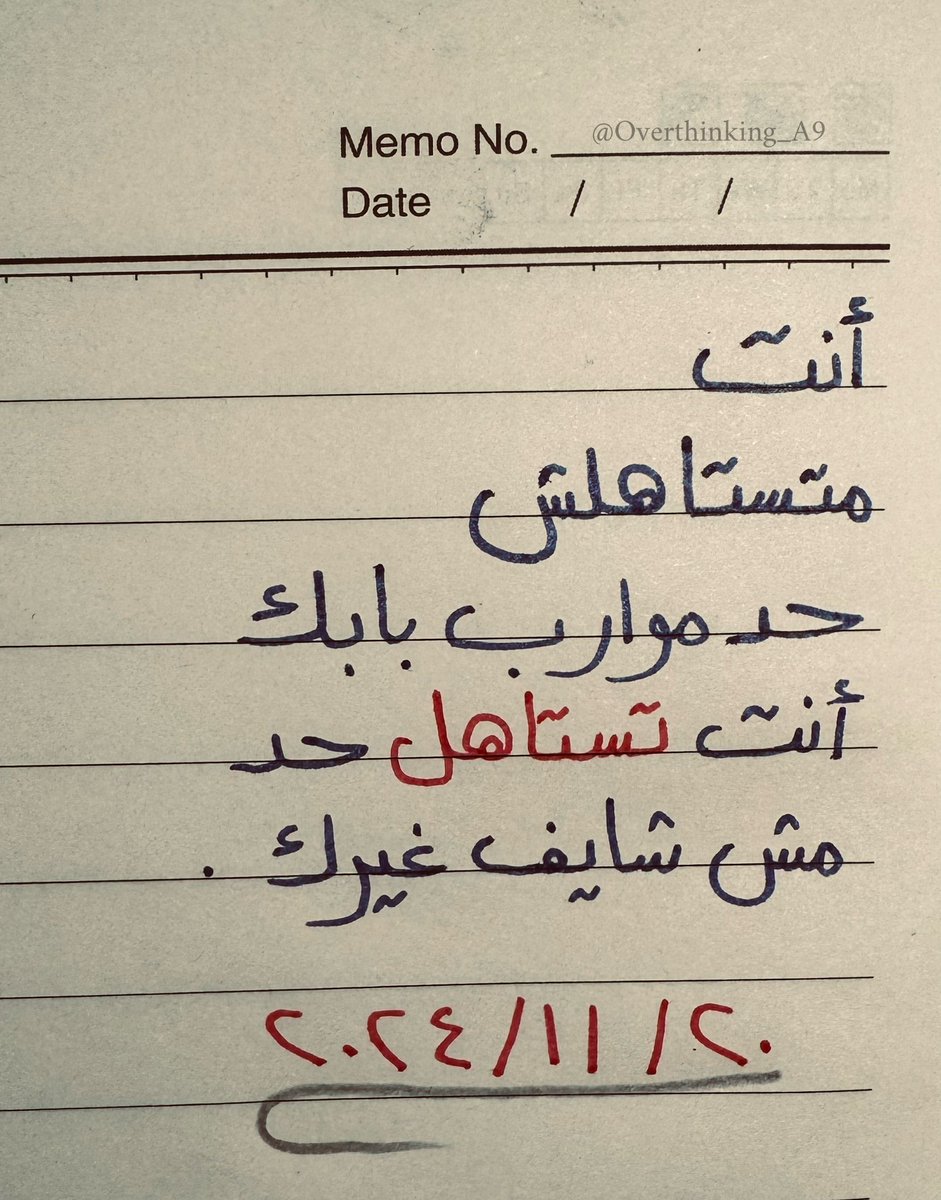 Memo No. @Overthinking_A9
Date / /
أنت
متستاهلش
حد موارب بابك
أنت تستاهل حد
مش شايف غيرك .
٢٠/١١/٢٠٢٤